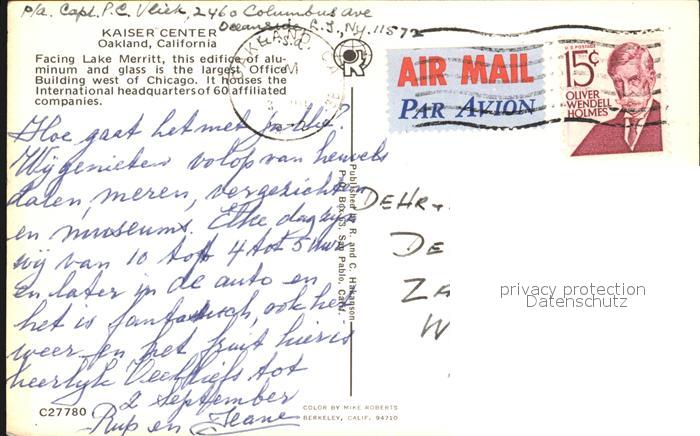 P/a. Capt. P.C. Vliek, 2460 Columbus Ave
Oceanside L.I., Ny. 11572
KAISER CENTER
Oakland, California
Facing Lake Merritt, this edifice of alu-
minum and glass is the largest Office
Building west of Chicago. It houses the
International headquarters of 60 affiliated
companies.
Hoe gaat het met
Wij genieten volop van heuvels
dalen, meren, vergezichten
en museums. Elke dag zijn
wij van 10 tot 4 tot 5 uur
en later in de auto en
het is fantastisch, ook het
weer en het fruit hier is
heerlijk Veel liefs tot
2 september
Rup en Jeane
C27780
COLOR BY MIKE ROBERTS
BERKELEY, CALIF. 94710
Published by R. and C. Hakanson
P.O. Box 3, San Pablo, Calif.
OAKLAND, CA
AIR MAIL
PAR AVION
U.S. POSTAGE
15¢
OLIVER
WENDELL
HOLMES
DE HR.
DE
ZA
W
privacy protection
Datenschutz